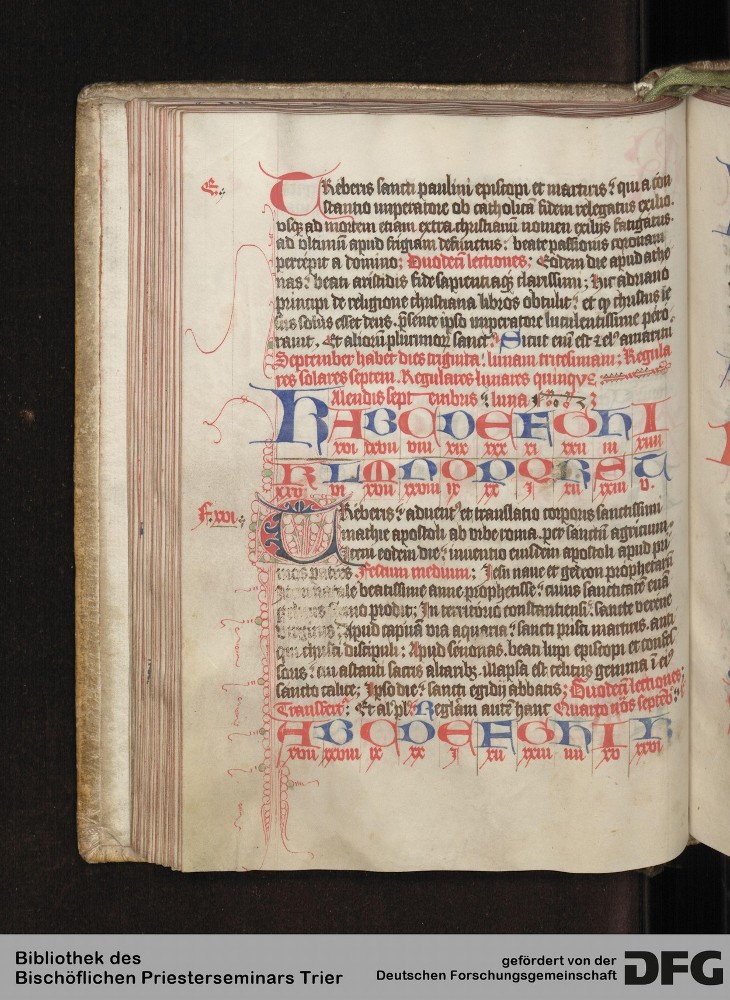 E.
Treberis sancti paulini episcopi et martiris : qui a con
stantio imperatore ob catholicā fidem relegatus exilio.
usqȝ ad mortem etiam extra christianū nomen exilijs fatigatus.
ad ultimū apud frigiam defunctus : beate passionis coronam
percepit a domino : Duodecī lectiones : Eodem die apud athe
nas : beati aristidis fide sapientiaqȝ clarissimi ; hic adriano
principi de religione christiana libros obtulit : et qȝ christus ie
sus solus esset deus. p̄sente ipso imperatore luculentissime pero
rauit. Et aliorū plurimorȝ sanct. Sicut enī est
September habet dies triginta. lunam tricesimam ; Regula
res solares septem. Regulares lunares quinqve
Kalendis sept embris : luna
A B C D E F G H I
xvi xxvii viii xix xxx xi xxii iii xiiii
K L M N O P Q R S T
xxv vi xvii xxviii ix xx i xii xxiii v.
F. xvi.
Treberis : aduentꝰ et translatio corporis sanctissimi
mathie apostoli ab urbe roma. per sanctā agricium.
Item eodem die : inuentio eiusdem apostoli apud pri
mos patres. Festum medium : Jesu naue et gedeon prophetarū
Item natale beatissime anne prophetisse : cuius sanctitatē euā
prodit ; In territorio constantiensi : sancte verene
virginis. Apud capuā via aquaria : sancti prisci martiris. anti
qui christi discipuli : Apud senonas. beati lupi episcopi et confes
soris : cui astanti sacris altaribȝ. illapsa est celitus gemma ī eiꝰ
sancto calice ; Ipso die : sancti egidij abbatis ; Duodecī lectiones
Et al' pl' Reglam autē hanc Quarto nōs septēb
A B C D E F G H I K
xvii xxviii ix xx i xii xxiii iiii xv xxvi
Bibliothek des
Bischöflichen Priesterseminars Trier
gefördert von der
Deutschen Forschungsgemeinschaft DFG